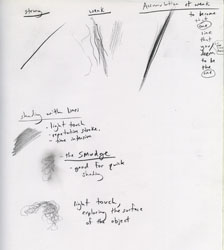 strong
weak
Accumulation of weak
to become
the
one
line
that
you
seem
to be
the
one
shading with lines
- light touch
- repetative stroke.
- time intensive
- the SMUDGE
- good for quick
shading
light touch,
exploring the surface
of the object